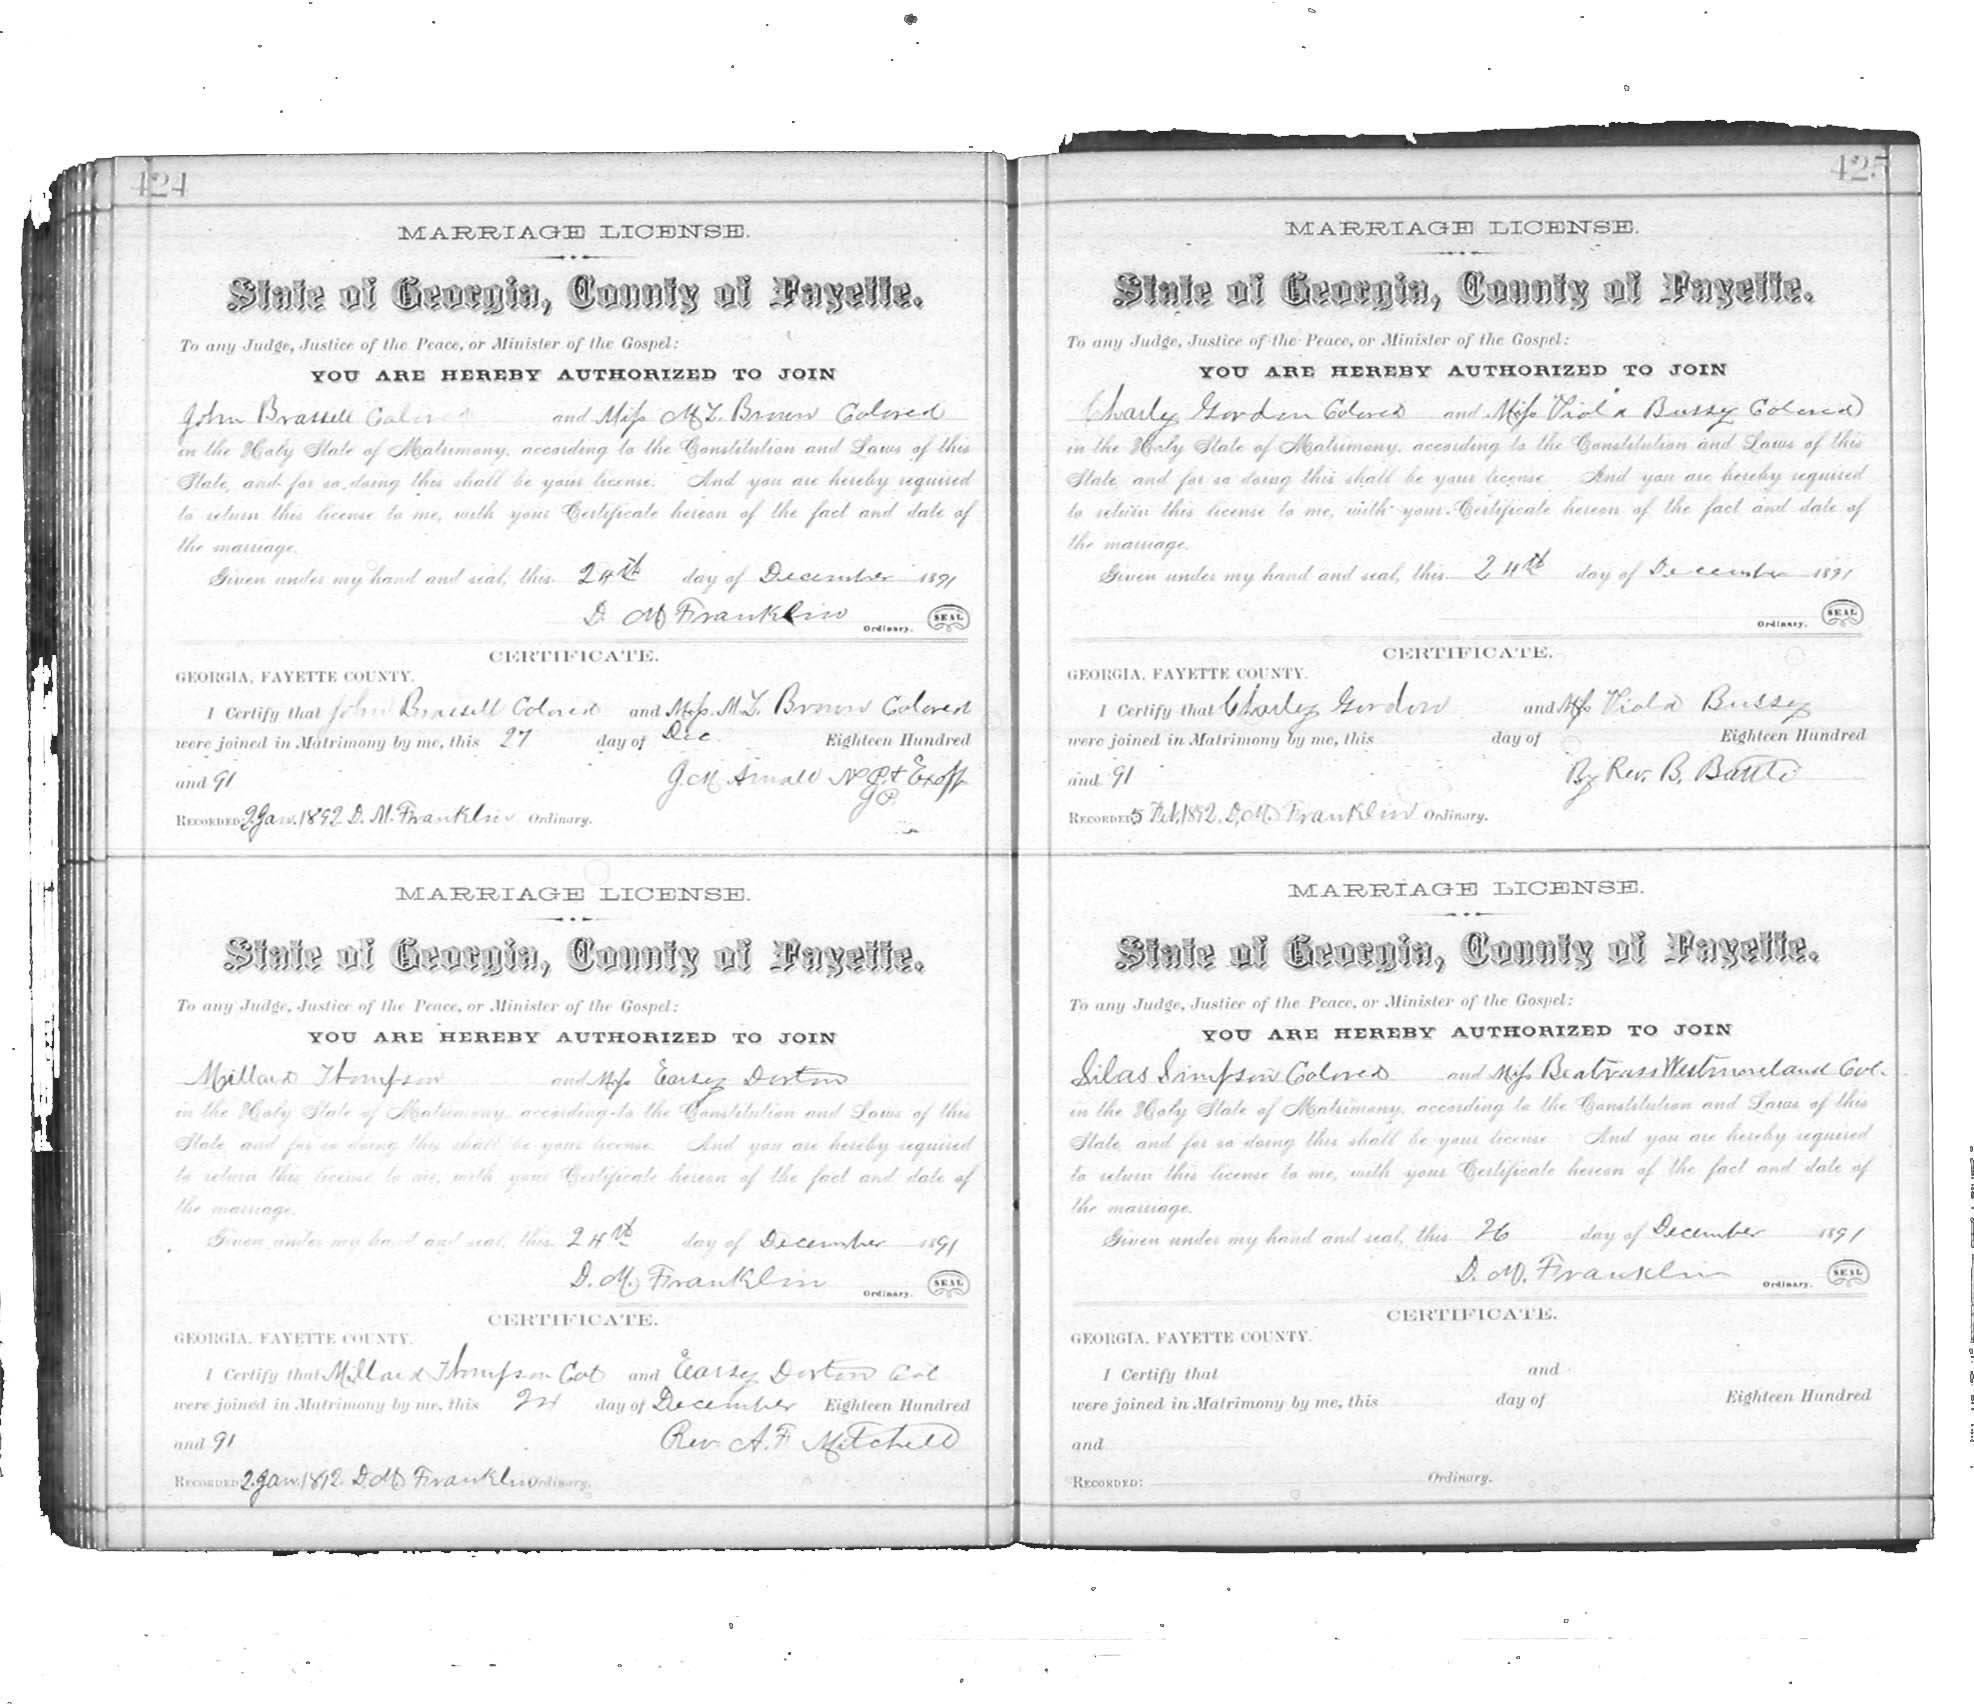 424
MARRIAGE LICENSE.
State of Georgia, County of Fayette.
To any Judge, Justice of the Peace, or Minister of the Gospel:
YOU ARE HEREBY AUTHORIZED TO JOIN
John Brassell Colored and Miss M L Brown Colored
in the Holy State of Matrimony, according to the Constitution and Laws of this
State, and for so doing this shall be your license. And you are hereby required
to return this license to me, with your Certificate hereon of the fact and date of
the marriage.
Given under my hand and seal, this 24th day of December 1891
D. M Franklin Ordinary. SEAL
CERTIFICATE.
GEORGIA, FAYETTE COUNTY.
I Certify that John Brassell Colored and Miss. M L. Brown Colored
were joined in Matrimony by me, this 27 day of Dec. Eighteen Hundred
and 91 J. M. Arnall N P & Exoff
J P
RECORDED: 2 Jan. 1892 D. M. Franklin Ordinary.
MARRIAGE LICENSE.
State of Georgia, County of Fayette.
To any Judge, Justice of the Peace, or Minister of the Gospel:
YOU ARE HEREBY AUTHORIZED TO JOIN
Millard Thompson and Miss Earsy Dorton
in the Holy State of Matrimony, according to the Constitution and Laws of this
State, and for so doing this shall be your license. And you are hereby required
to return this license to me, with your Certificate hereon of the fact and date of
the marriage.
Given under my hand and seal, this 24th day of December 1891
D. M. Franklin Ordinary. SEAL
CERTIFICATE.
GEORGIA, FAYETTE COUNTY.
I Certify that Millard Thompson Col and Earsy Dorton Col
were joined in Matrimony by me, this 24 day of December Eighteen Hundred
and 91 Rev A. F Mitchell
RECORDED: 2 Jan. 1892. D. M Franklin Ordinary.
425
MARRIAGE LICENSE.
State of Georgia, County of Fayette.
To any Judge, Justice of the Peace, or Minister of the Gospel:
YOU ARE HEREBY AUTHORIZED TO JOIN
Charly Gordon Colored and Miss Viola Bussy Colored
in the Holy State of Matrimony, according to the Constitution and Laws of this
State, and for so doing this shall be your license. And you are hereby required
to return this license to me, with your Certificate hereon of the fact and date of
the marriage.
Given under my hand and seal, this 24th day of December 1891
Ordinary. SEAL
CERTIFICATE.
GEORGIA, FAYETTE COUNTY.
I Certify that Charley Gordon and Miss Viola Bussey
were joined in Matrimony by me, this day of Eighteen Hundred
and 91 By Rev. B. Battle
RECORDED: 5 Feb, 1892. D. M. Franklin Ordinary.
MARRIAGE LICENSE.
State of Georgia, County of Fayette.
To any Judge, Justice of the Peace, or Minister of the Gospel:
YOU ARE HEREBY AUTHORIZED TO JOIN
Silas Simpson Colored and Miss Beatrass Westmoreland Col.
in the Holy State of Matrimony, according to the Constitution and Laws of this
State, and for so doing this shall be your license. And you are hereby required
to return this license to me, with your Certificate hereon of the fact and date of
the marriage.
Given under my hand and seal, this 26 day of December 1891
D. M. Franklin Ordinary. SEAL
CERTIFICATE.
GEORGIA, FAYETTE COUNTY.
I Certify that and
were joined in Matrimony by me, this day of Eighteen Hundred
and
RECORDED: Ordinary.